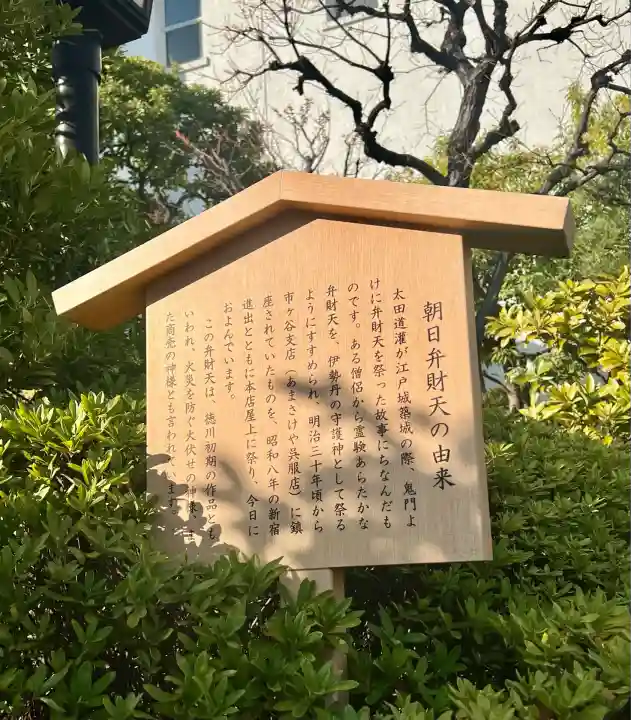 朝日弁財天の由来
太田道灌が江戸城築城の際、鬼門よ
けに弁財天を祭った故事にちなんだも
のです。ある僧侶から霊験あらたかな
弁財天を、伊勢丹の守護神として祭る
ようにすすめられ、明治三十年頃から
市ヶ谷支店（あまさけや呉服店）に鎮
座されていたものを、昭和八年の新宿
進出とともに本店屋上に祭り、今日に
およんでいます。
この弁財天は、徳川初期の作品とも
いわれ、火災を防ぐ火伏せの神様、ま
た商売の神様とも言われています。